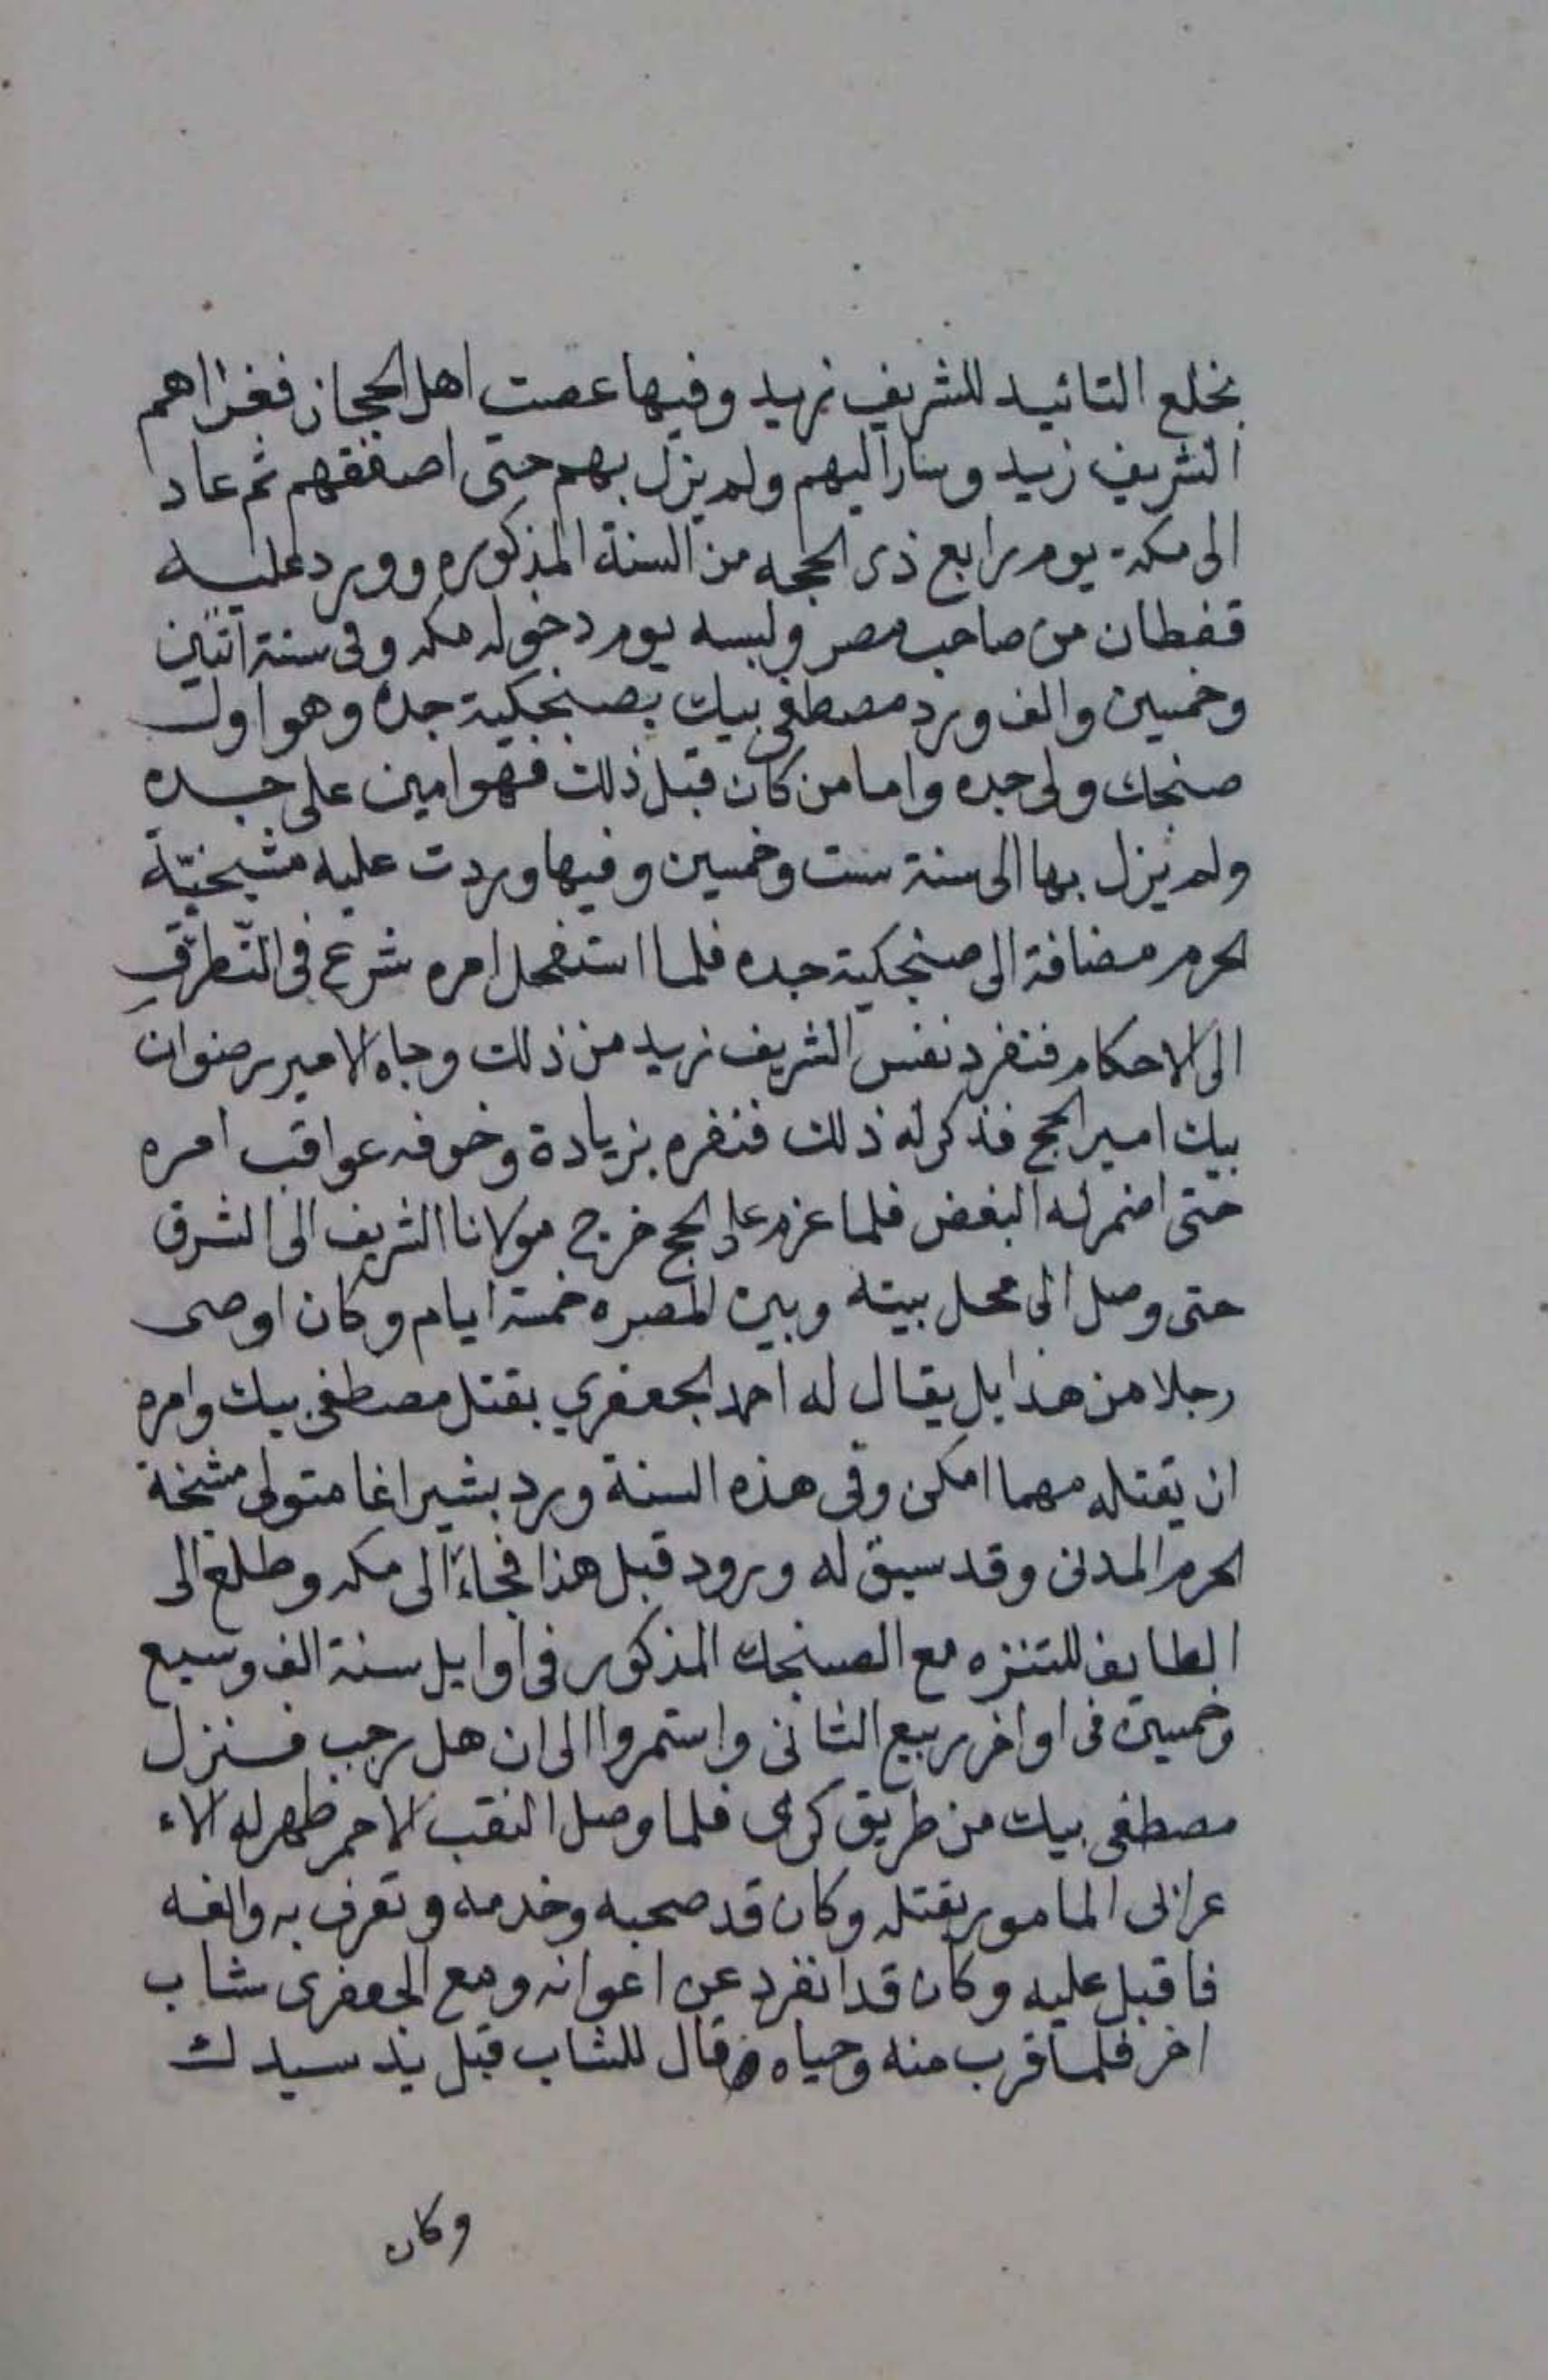 بخلع التائيد للشريف زيد وفيها عصت اهل الحجاز فغزاهم
الشريف زيد وسار اليهم ولم يزل بهم حتى اصفقهم ثم عاد
الى مكة يوم رابع ذى الحجه من السنة المذكوره وورد عليه
قفطان من صاحب مصر ولبسه يوم دخوله مكه وفى سنة اثنين
وخمسين والف ورد مصطفى بيك بصنجكية جده وهو اول
صنجك ولى جده واما من كان قبل ذلك فهو امين على جده
ولم يزل بها الى سنة ست وخمسين وفيها وردت عليه مشيخيّة
الحرم مضافة الى صنجكية جده فلما استفحل امره شرع فى التطرق
الى الاحكام فنفرد نفس الشريف زيد من ذلك وجاه الامير رضوان
بيك امير الحج فذكر له ذلك فنفره بزيادة وخوفه عواقب امره
حتى اضمر له البغض فلما عزم على الحج خرج مولانا الشريف الى الشرق
حتى وصل الى محل بيته وبين المصره خمسة ايام وكان اوصى
رجلا من هذايل يقال له احمد الجعفري بقتل مصطفى بيك وامره
ان يقتله مهما امكن وفى هذه السنة ورد بشير اغا متولى مشخة
الحرم المدنى وقد سبق له ورود قبل هذا فجاء الى مكه وطلع الى
الطايف للتنزه مع الصنجك المذكور فى اوايل سنة الف وسبع
وخمسين فى اواخر ربيع الثانى واستمروا الى ان هل رجب فنزل
مصطفى بيك من طريق كرى فلما وصل النقب الاحمر ظهر له الاء
عرابى المامور بقتله وكان قد صحبه وخدمه وتعرف به والفه
فاقبل عليه وكان قد انفرد عن اعوانه ومع الجعفرى شاب
اخر فلما قرب منه وحياه قال للشاب قبل يد سيدك
وكان